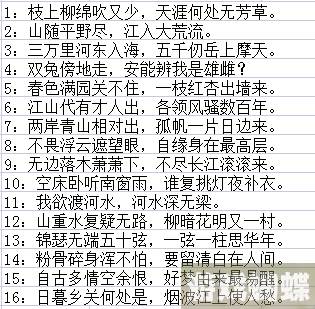 1：枝上柳绵吹又少，天涯何处无芳草。
2：山随平野尽，江入大荒流。
3：三万里河东入海，五千仞岳上摩天。
4：双兔傍地走，安能辨我是雄雌？
5：春色满园关不住，一枝红杏出墙来。
6：江山代有才人出，各领风骚数百年。
7：两岸青山相对出，孤帆一片日边来。
8：不畏浮云遮望眼，自缘身在最高层。
9：无边落木萧萧下，不尽长江滚滚来。
10：空床卧听南窗雨，谁复挑灯夜补衣。
11：我欲渡河水，河水深无梁。
12：山重水复疑无路，柳暗花明又一村。
13：锦瑟无端五十弦，一弦一柱思华年。
14：粉骨碎身浑不怕，要留清白在人间。
15：自古多情空余恨，好梦由来最易醒。
16：日暮乡关何处是，烟波江上使人愁。
蝶